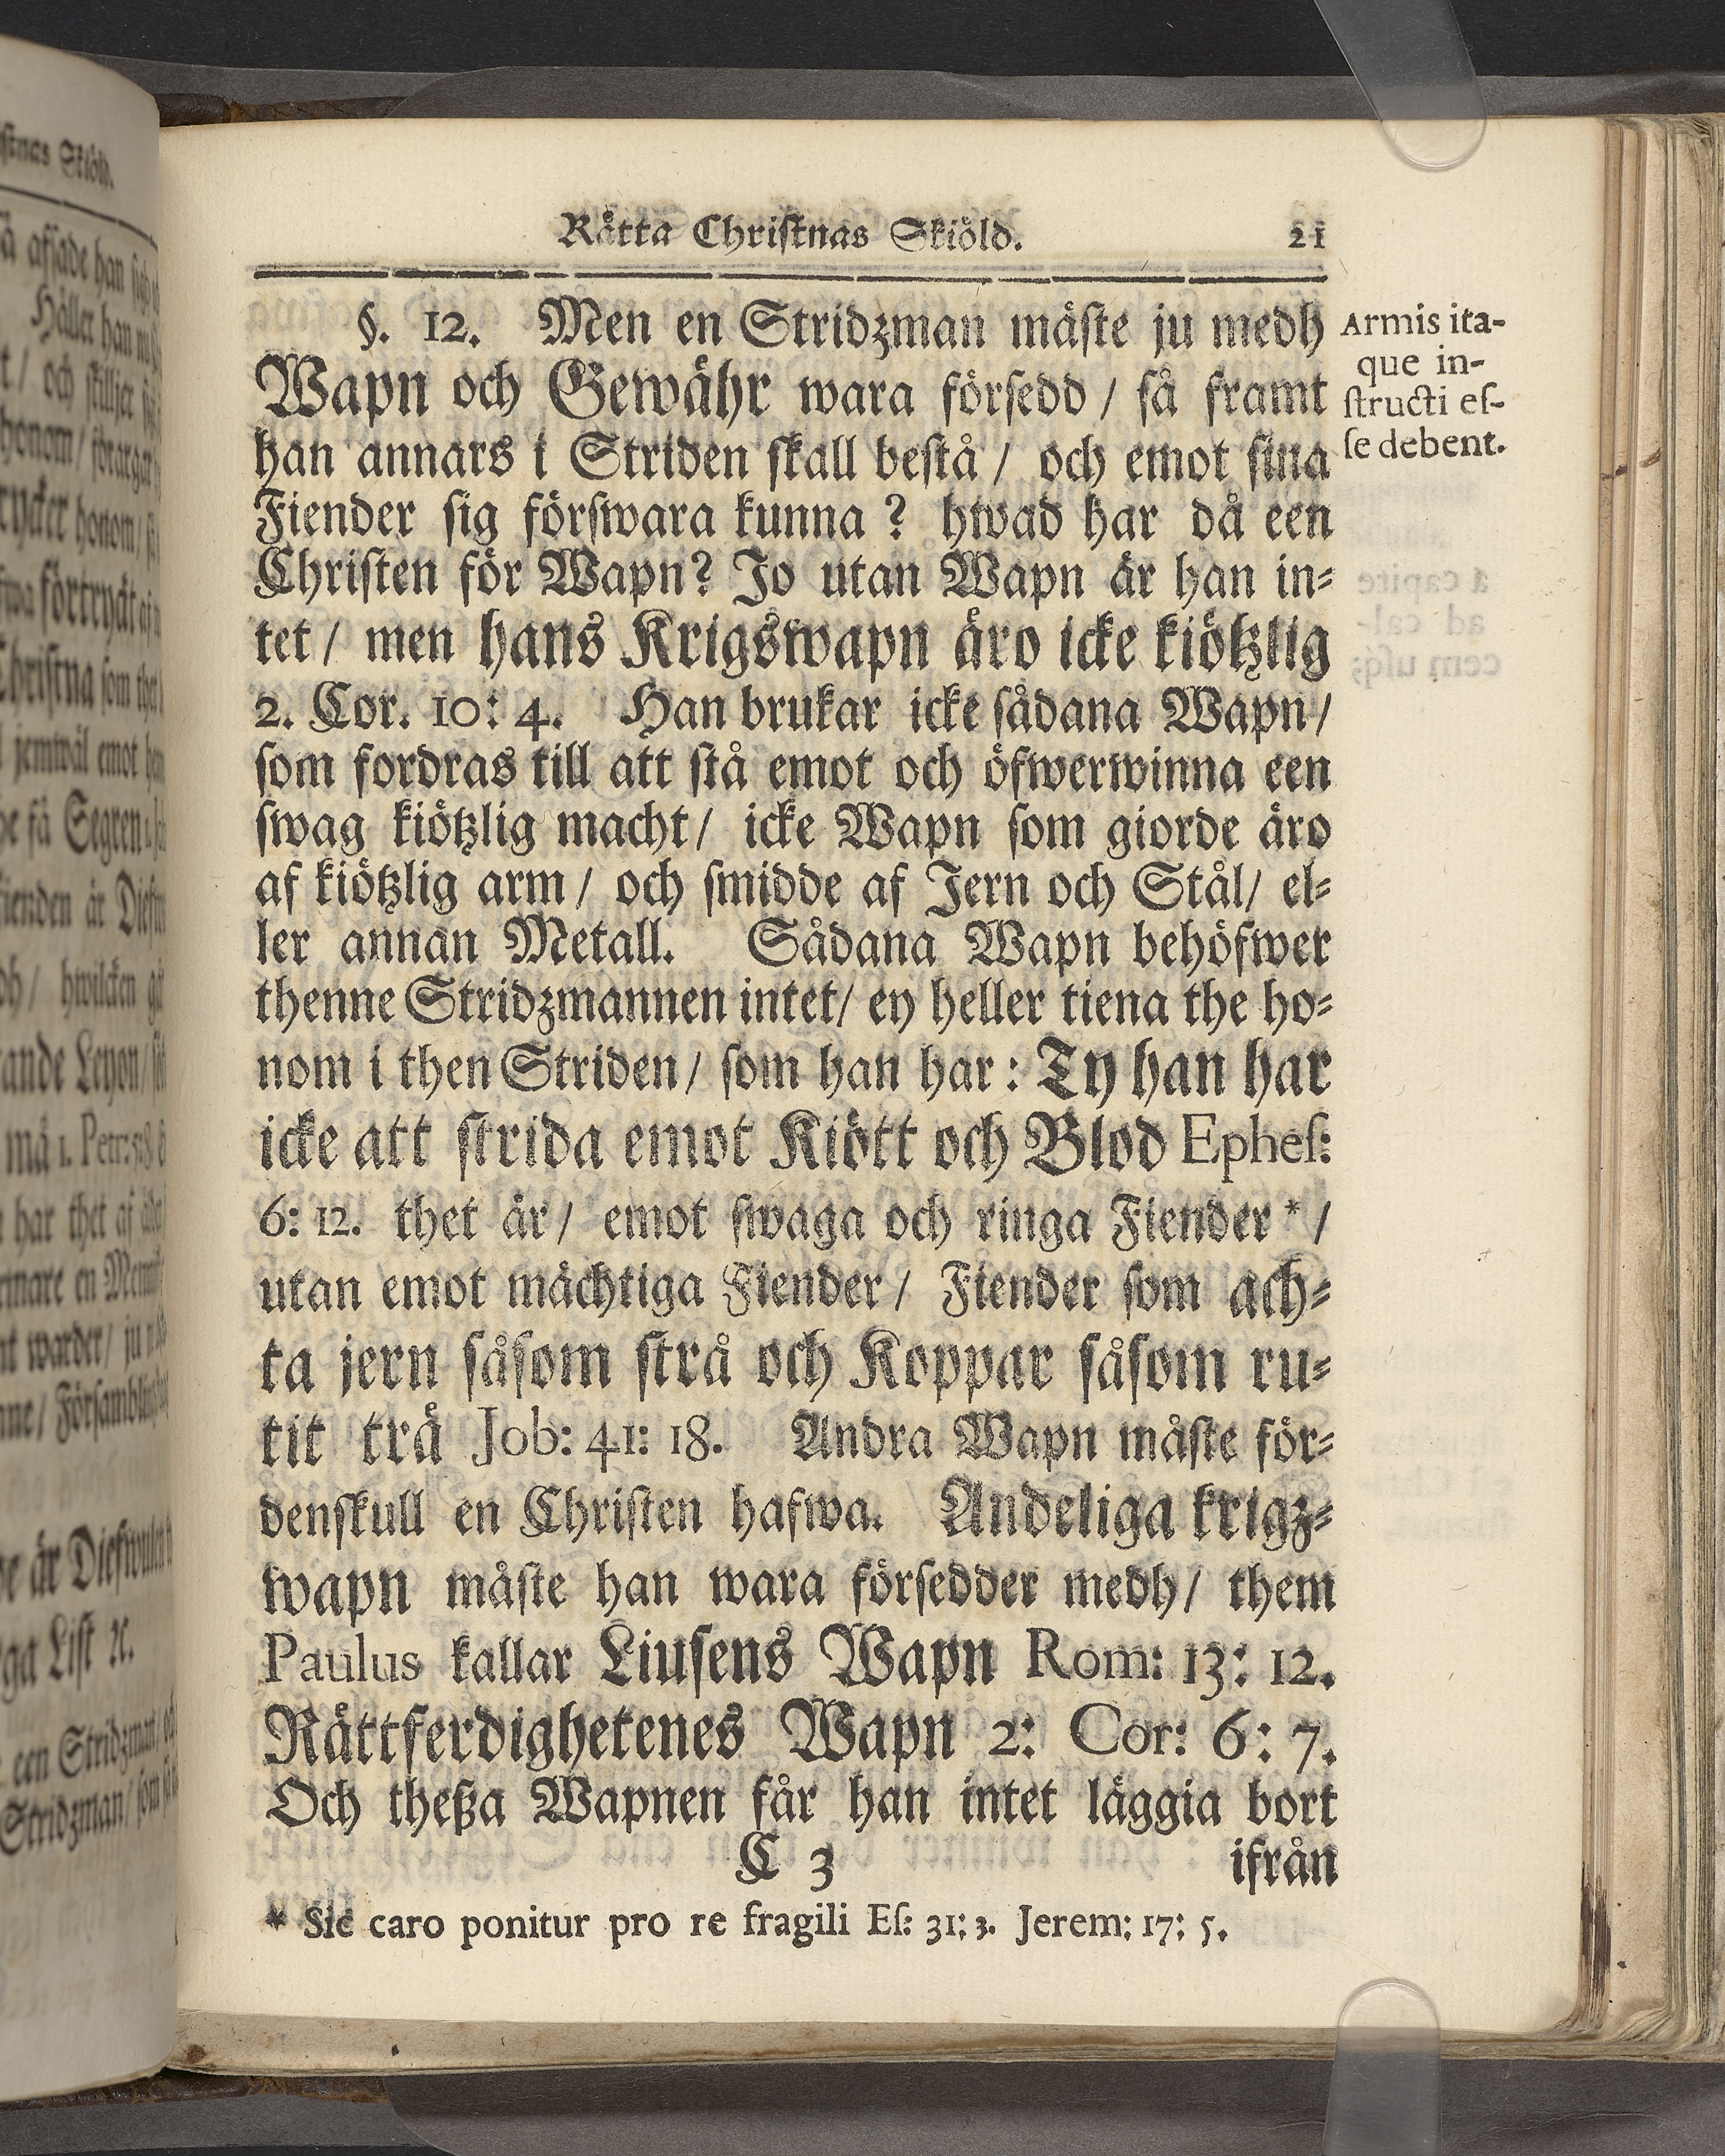 Rätta Christnas Skiöld. 21
§. 12. Men en Stridzman måste ju medh
Wapn och Gewähr wara försedd / så framt
han annars i Striden skall bestå / och emot sina
Fiender sig förswara kunna ? hwad har då een
Christen för Wapn? Jo utan Wapn är han in⸗
tet / men hans Krigswapn äro icke kiötzlig
2. Cor. 10: 4. Han brukar icke sådana Wapn /
som fordras till att stå emot och öfwerwinna een
swag kiötzlig macht / icke Wapn som giorde äro
af kiötzlig arm / och smidde af Jern och Stål / el⸗
ler annan Metall. Sådana Wapn behöfwer
thenne Stridzmannen intet / ey heller tiena the ho⸗
nom i then Striden / som han har : Ty han har
icke att strida emot Kiött och Blod Ephes:
6: 12. thet är / emot swaga och ringa Fiender * /
utan emot mächtiga Fiender / Fiender som ach⸗
ta jern såsom strå och Koppar såsom ru⸗
tit trä Job: 41: 18. Andra Wapn måste för⸗
denskull en Christen hafwa. Andeliga krigz⸗
wapn måste han wara försedder medh / them
Paulus kallar Liusens Wapn Rom: 13: 12.
Rättferdighetenes Wapn 2: Cor: 6: 7.
Och theßa Wapnen får han intet läggia bort
C 3 ifrån
* Sic caro ponitur pro re fragili Es: 31: 3. Jerem: 17: 5.
Armis ita-
que in-
structi es-
se debent.